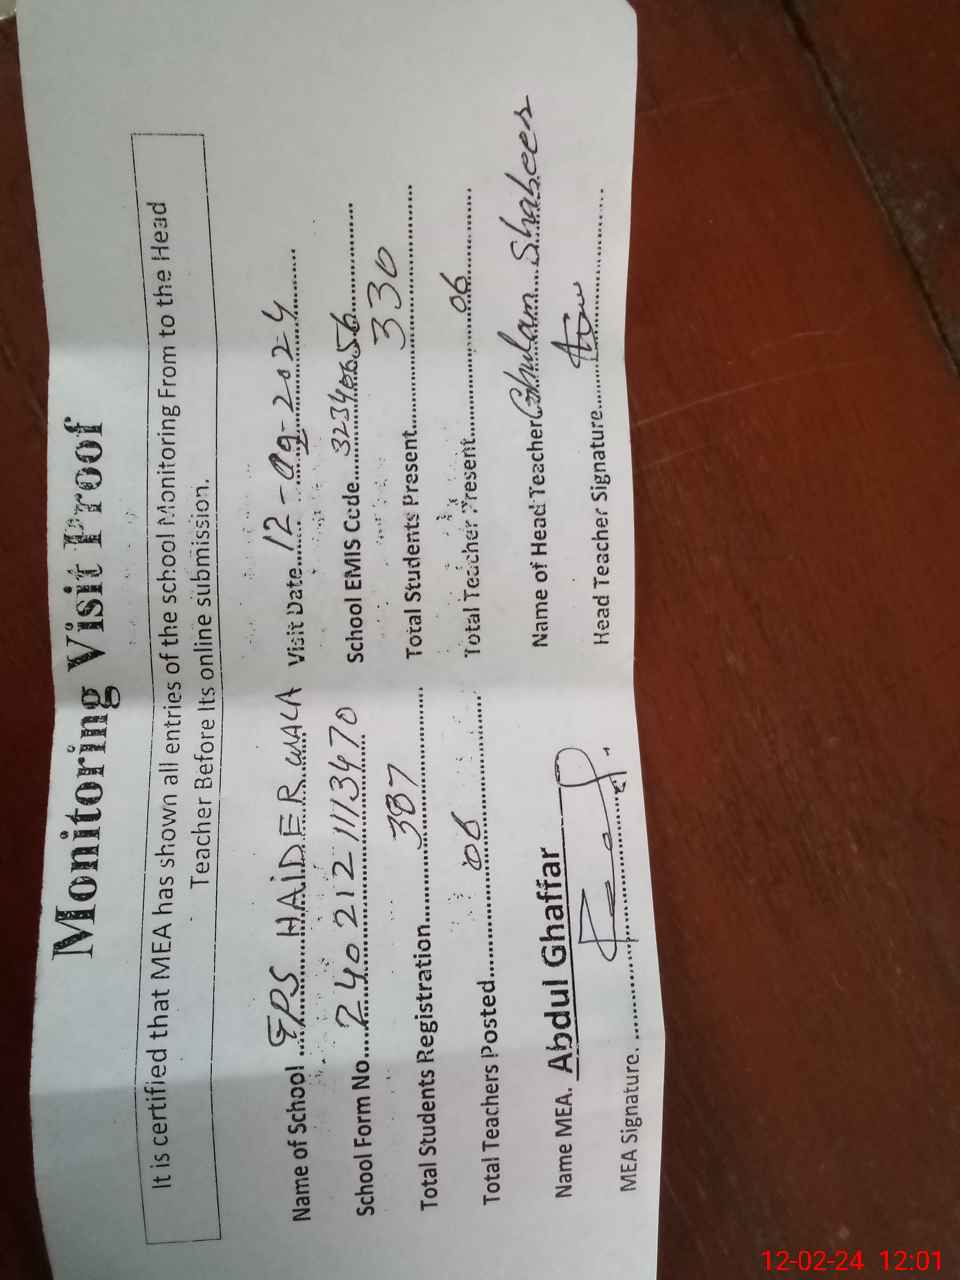 Monitoring Visit Proof
It is certified that MEA has shown all entries of the school Monitoring From to the Head
Teacher Before Its online submission.
Name of School ....EPS HAIDER WALA Visit Date.....12-09-2024
School Form No.....240212111 3470 School EMIS Code....32340656
Total Students Registration.......387 Total Students Present.......330
Total Teachers Posted.......06 Total Teacher Present.......06
Name MEA. Abdul Ghaffar Name of Head Teacher Ghulam Shabeer
MEA Signature. ....... Head Teacher Signature.......
12-02-24 12:01